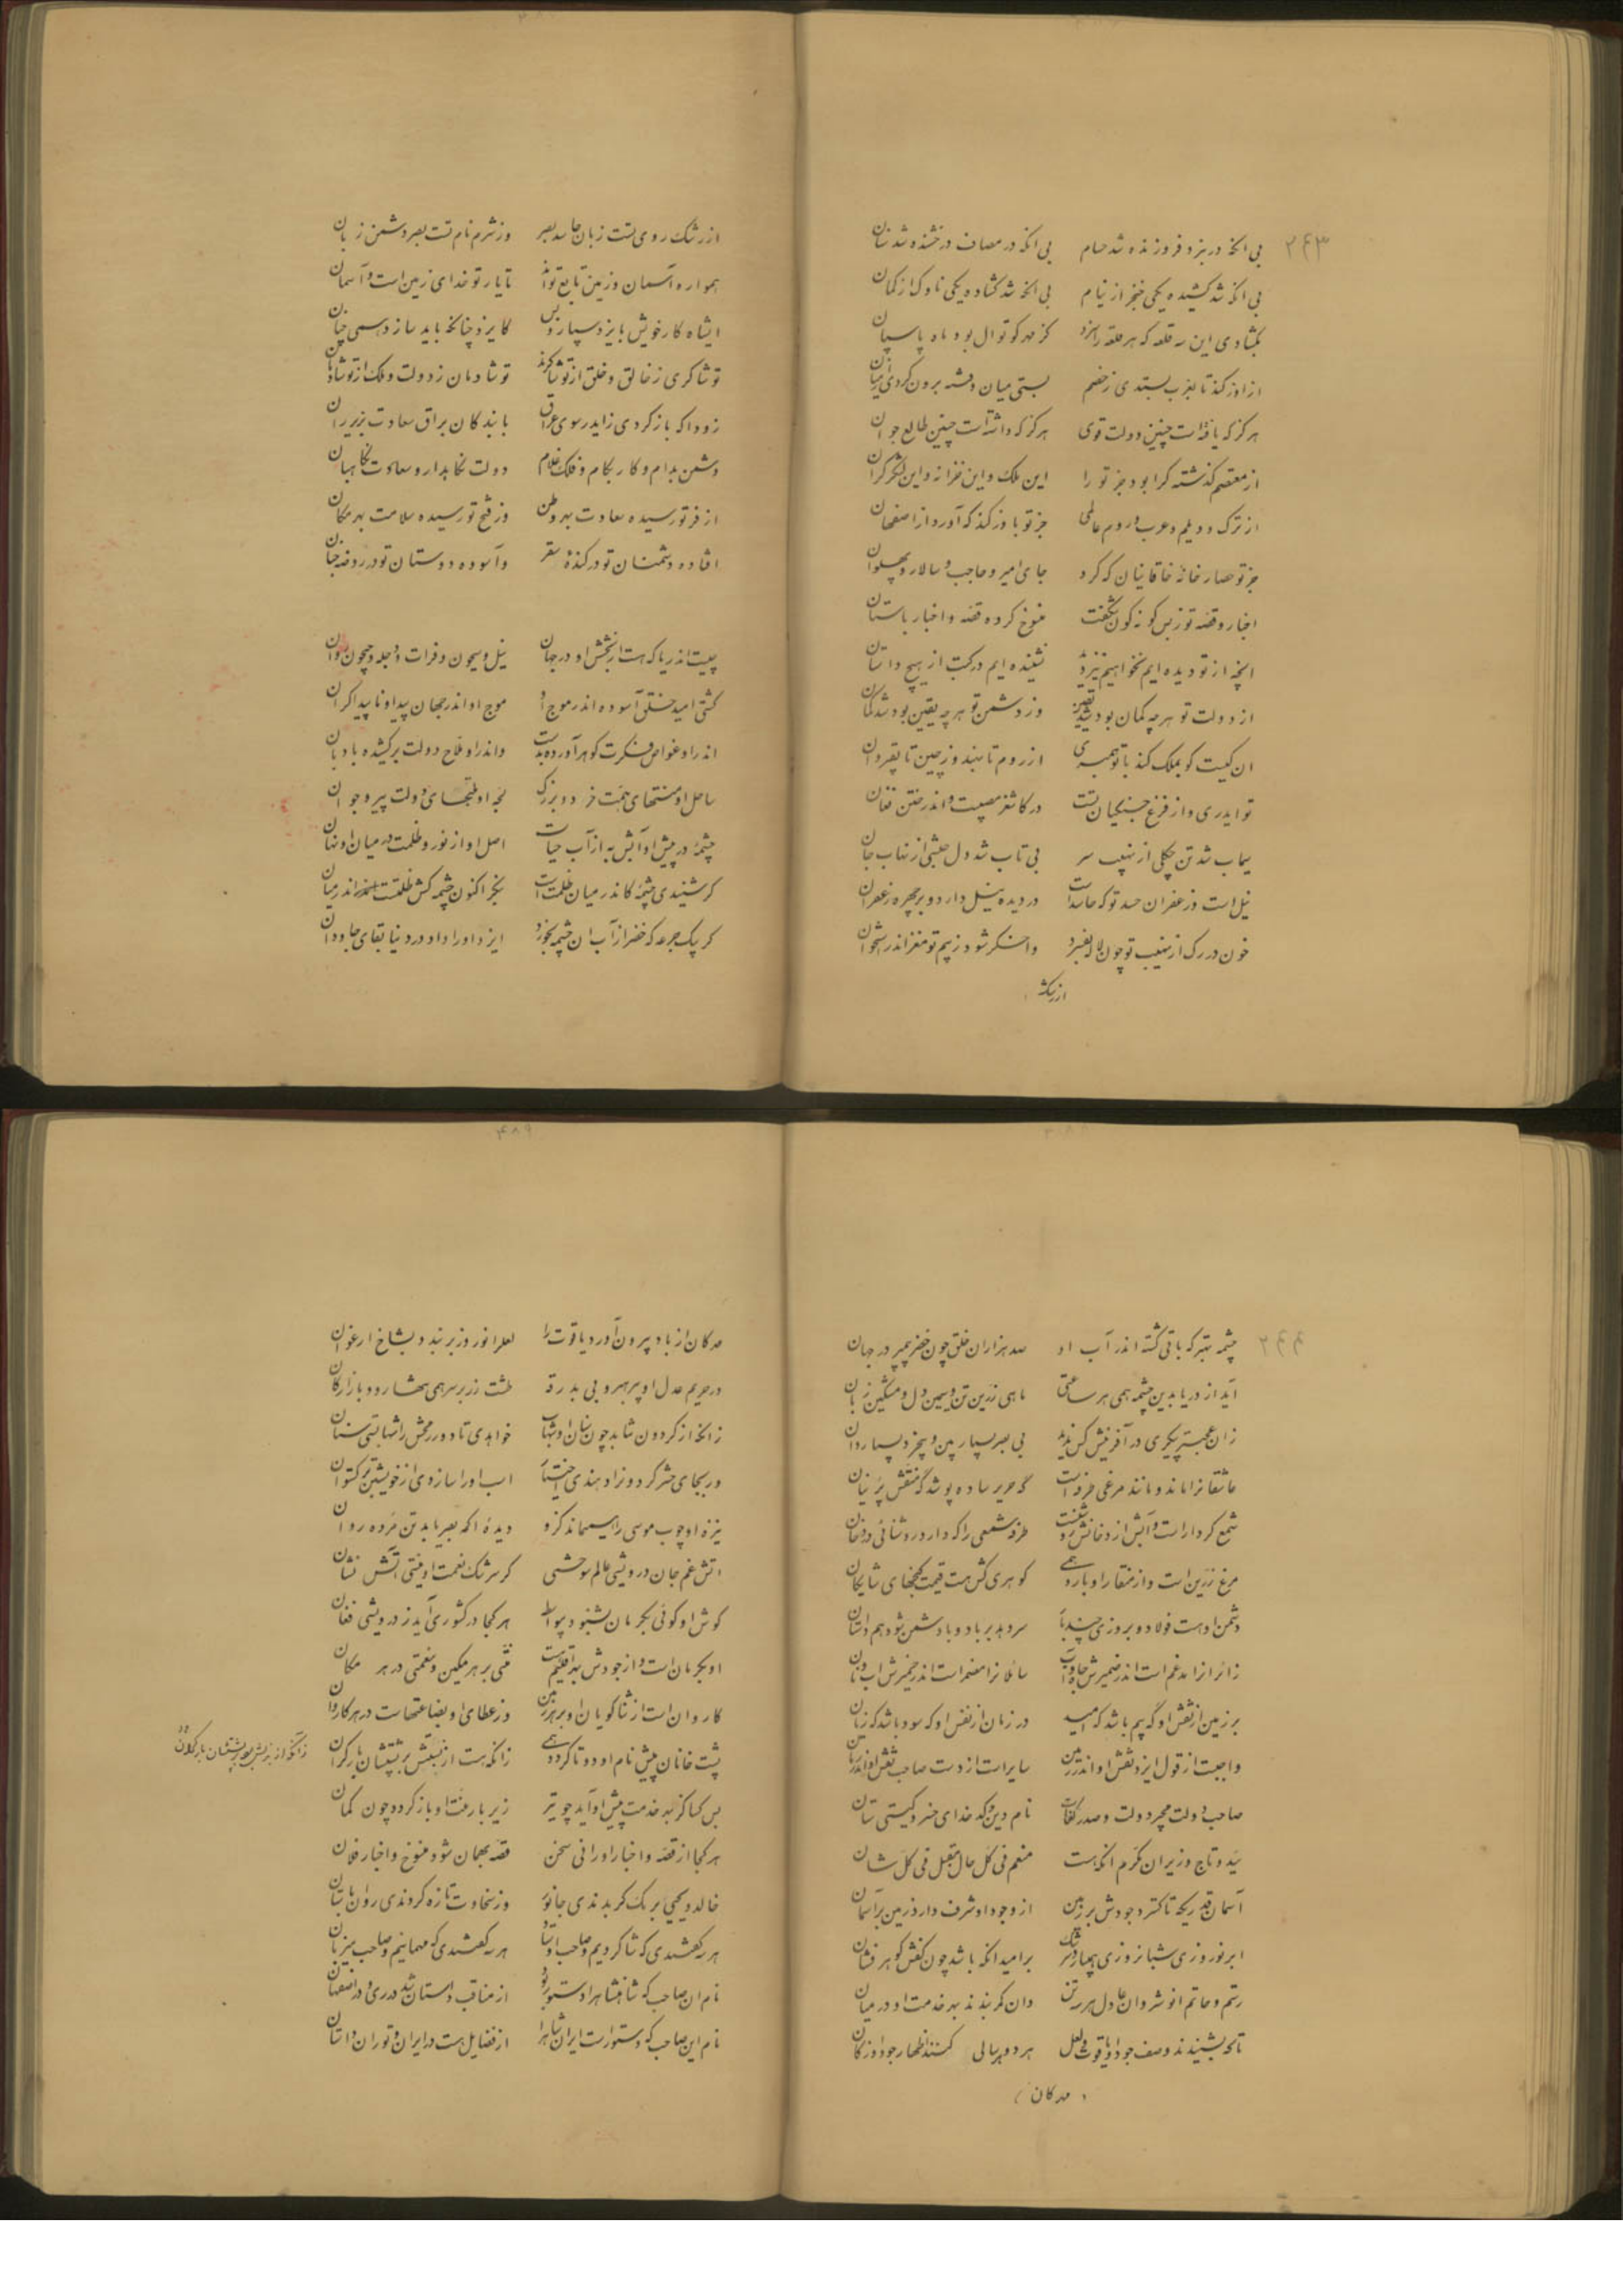 ۲۴۳
بی انکه در نبرد فروزنده شد حسام بی انکه در مصاف درخشنده شد سنان
بی انکه شد کشیده یکی خنجر از نیام بی انکه شد کشاده یکی ناوک از کمان
بکشادی این سه قلعه که هر قلعه را سزد کز مهر کوتوال بود ماه پاسبان
از اوزکند تا بعرب بستدی ز خصم بستی میان و فتنه برون کردی از میان
هرکز که یافته است چنین دولت قوی هرکز که داشته است چنین طالع جوان
از معتصم گذشته کرا بود جز تو را این ملک و این خزانه و این لشکر گران
از ترک و دیلم و عرب و روم عالمی جز تو باوزکند که آورد از اصفهان
جز تو حصار خانه خاقانیان که کرد جای امیر و حاجب و سالار و پهلوان
اخبار و قصه تو ز بس گونه گون شگفت منسوخ کرده قصه و اخبار باستان
انچه از تو دیده ایم نخواهیم نیز دید نشنیده ایم در کتب از هیچ داستان
از دولت تو هر چه گمان بود شد یقین وز دشمن تو هر چه یقین بود شد گمان
ان کیست کو بملک کند با تو همسری از روم تا بهند وز چین تا بقیروان
تو ایدری و از فزع جنگیان تست در کاشغر مصیبت و اندر ختن فغان
سیماب شد تن چگلی از نهیب سر بی تاب شد دل حبشی از نهاب جان
نیل است و زعفران حسد تو که حاسدت در دیده نیل دارد و بر چهره زعفران
خون در رگ از نهیب تو چون لاله بفسرد واخسگر شود ز بیم تو مغز اندر استخوان
از رشک
از رشک روی تست زبان حاسد بصر وز شرم نام تست بصر دشمن زبان
همواره آسمان و زمین تابع تواند تا یار تو خدای زمین است و آسمان
ایشاه کار خویش بایزد سپار و بس کایزد چنانکه باید سازد همی چنان
تو شاکری ز خالق و خلق از تو شاکرند تو شادمان ز دولت و ملک از تو شادمان
زودا که باز کردی زایدر سوی عراق با بندکان براق سعادت بزیر ران
دشمن بدام و کار بکام و فلک غلام دولت نگاهدار و سعادت نگاهبان
از فر تو رسیده سعادت بهر وطن وز فتح تو رسیده سلامت بهر مکان
افتاده دشمنان تو در کنده سقر وآسوده دوستان تو در روضه جنان
چیست اندریا که هست از بخشش او در جهان نیل و سیحون و فرات و دجله و جیحون روان
کشتی امید خلقی آسوده اندر موج او موج او اندر جهان پیدا و ناپیدا کران
اندر او غواص فکرت گوهر آورده بدست واندر او ملاح دولت برکشیده بادبان
ساحل او منتهای همت خرد و بزرگ لجه او ملتجای دولت پیر و جوان
چشمه در پیش او آبش به از آب حیات اصل او از نور و ظلمت در میان او نهان
گر شنیدی چشمه کاندر میان ظلمت است بنگر اکنون چشمه کش ظلمت است اندر میان
گر بیک جرعه که خضر از آب ان چشمه بخورد ایزد او را داد در دنیا بقای جاودان
۲۴۴
چشمه بهتر که باقی گشته اندر آب او صد هزاران خلق چون خضر پیمبر در جهان
آید از دریا بدین چشمه همی هر ساعتی ماهی زرین تن و سیمین دل و مشکین زبان
زان عجب‌تر پیکری در آفرینش کس ندید بی بصر بسیار بین و بیخرد بسیار دان
عاشقانرا ماند و مانند مرغی طرفه است گه حریر ساده پوشد گه منقش پرنیان
شمع کردار است و آتش از دخانش رشگفت طرفه شمعی را که دارد روشنائی در دخان
مرغ زرین است و از منقار او بارد همی گوهری کش هست قیمت گنجهای شایگان
دشمن او هست فولاد و بروزی چند بار سر دهد بر باد و با دشمن شود هم داستان
زائرانرا مدغم است اندر ضمیرش جاه و آب سائلانرا مضمر است اندر خمیرش آب و نان
بر زمین از نقش او گه بیم باشد که امید در زمان از نفس او که سود باشد که زیان
واجبست از قول ایزد نقش او اندر زمین سایر است از دست صاحب نقش او اندر زمان
صاحب دولت مجیر دولت و صدر کفات نام دین و کدخدای خسرو گیتی ستان
سید و تاج وزیران مکرم انکه هست منعم فی کل حال مقبل فی کل شان
آسمان قدریکه تا گسترد جودش بر زمین از وجود او شرف دارد زمین بر آسمان
ابر نوروزی شبانروزی همی بارد سرشک بر امید انکه باشد چون کفش گوهرفشان
رستم و حاتم انوشروان عادل هر سه تن دان کمر بندند بهر خدمت او در میان
تا که بشنیدند وصف جود او یاقوت و لعل هر دو هر سالی کنند اظهار جود او ز کان
مه کان
مه کان از باد بیرون آورد یاقوت را لعل را نوروز بر بندد بشاخ ارغوان
در حریم عدل او پر بهر و بی بدرقه طشت زر بر سر همی بخشا رود بازارگان
زانکه از گردون شاید چون سنان او شهاب خواهدی تا دور رمحش را شهابستی سنان
ور بجای حشر گردد زاد هندی اختیار اسب او را سازدی از خویشتن برگستوان
نیزه او چوب موسی را همیماند کزو دیده اکمه بصیر یابد تن مرده روان
آتش غم جان درویشی عالم سوختی گر سرشک نعمت او نیستی آتش نشان
گوش او گوئی بکرمان بشنود پیواسطه هر کجا در کشوری آید ز درویشی فغان
او بکرمان است و از جودش بهر اقلیم هست منتی بر هر مکین و نعمتی در هر مکان
کاروان است از ثنا گویان او بر هر زمین وز عطای او بضاعتهاست در هر کاروان
پشت خانان پیش نام او دو تا گردد همی زانکه هست از منتش بر پشتشان بار گران
بس کسا کز بهر خدمت پیش او آید چو تیر زیر بار منت او باز گردد چون کمان
هر کجا از قصه و اخبار او رانی سخن قصه بهمان شود منسوخ و اخبار فلان
خالد و یحیی برمک گر بدندی جانور وز سخاوت تازه کردندی روان باستان
هر سه گفتندی که شاگردیم و صاحب اوستاد هر سه گفتندی که مهمانیم و صاحب میزبان
نام ان صاحب که شاهنشاه را دستور بود از مناقب داستان شد در ری و در اصفهان
نام این صاحب که دستور است ایران شاه را از فضایل هست در ایران و توران داستان
۴۸۹